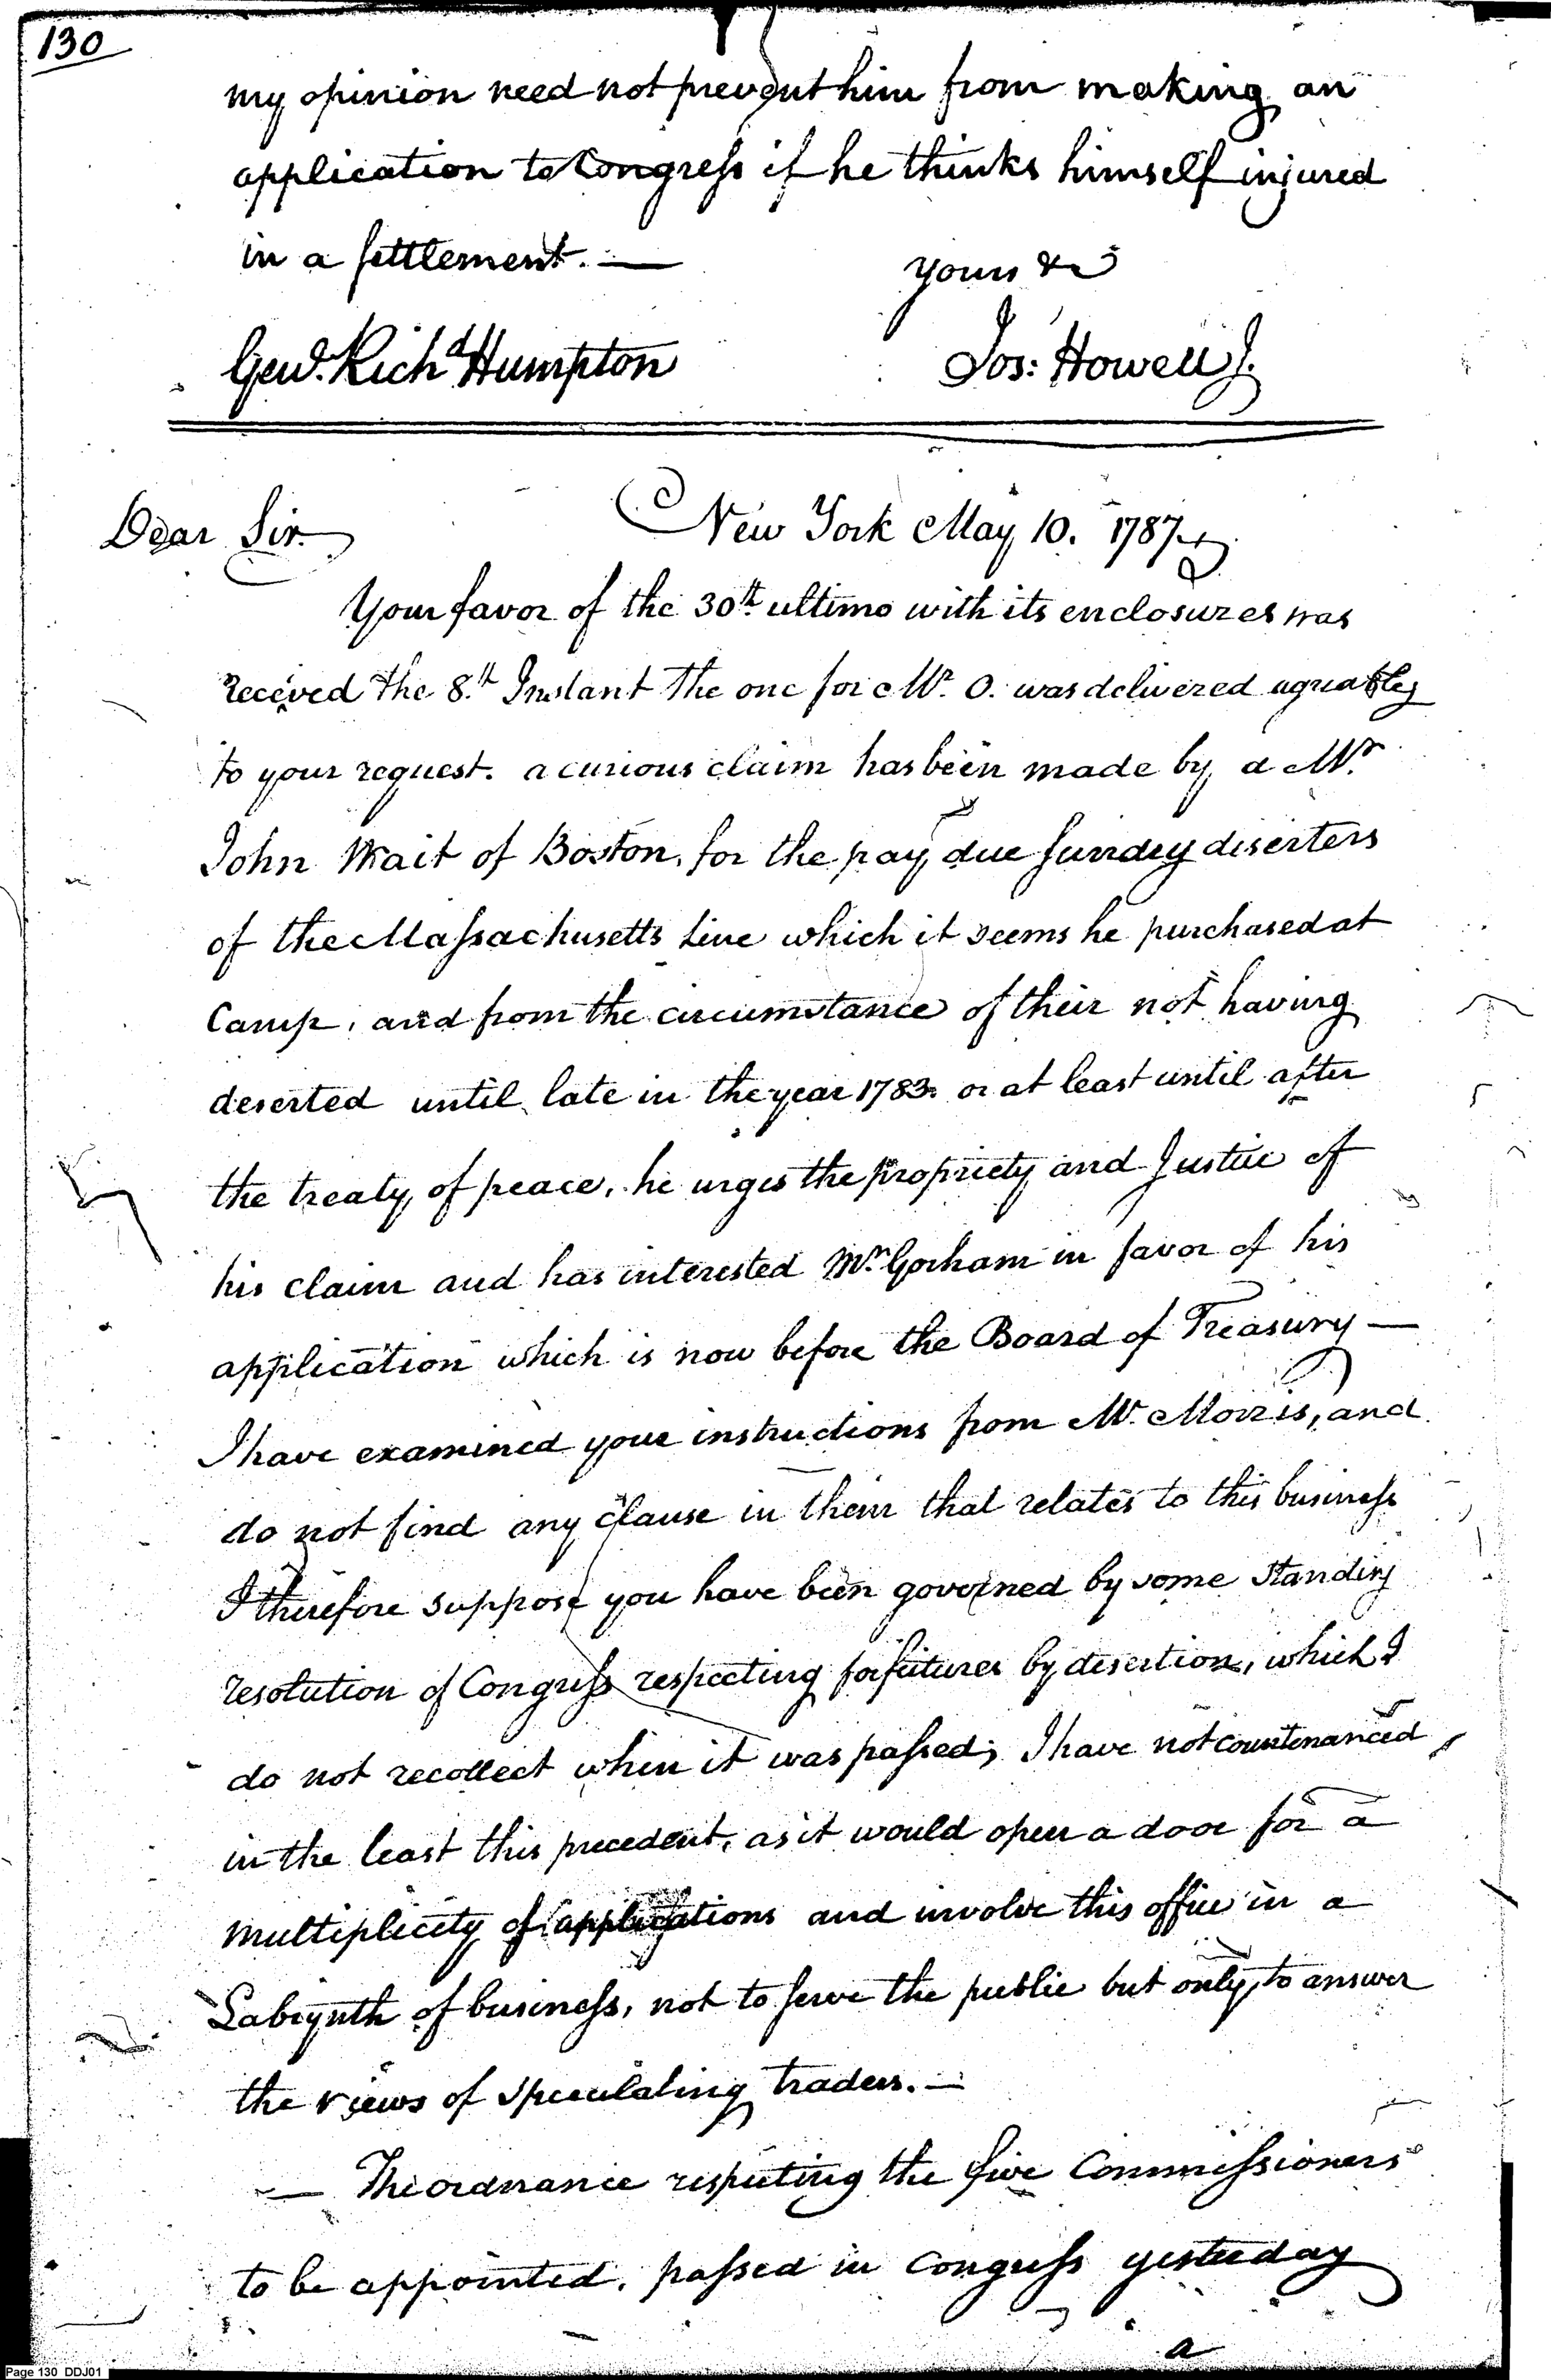 130
my opinion need not prevent him from making an
application to Congress if he thinks himself injured
in a settlement. —
yours &c
Genl. Richd Humpton
Jos: Howell J.
New York May 10. 1787
Dear Sir.
Your favor of the 30th ultimo with its enclosures was
received the 8.th Instant The one for Mr. O. was delivered agreably
to your request. a curious claim has been made by a Mr.
John Wait of Boston, for the pay due sundry diserters
of the Massachusetts Line which it seems he purchased at
Camp, and from the circumstance of their not having
deserted until late in the year 1783. or at least until after
the treaty of peace, he urges the propriety and Justice of
his claim and has interested Mr. Gorham in favor of his
application which is now before the Board of Treasury —
I have examined your instructions from Mr. Morris, and
do not find any clause in them that relates to this business
I therefore suppose you have been governed by some standing
resolution of Congress respecting forfeitures by desertion, which I
do not recollect when it was passed; I have not countenanced
in the least this precedent, as it would open a door for a
multiplicity of applications and involve this office in a
Labrynth of business, not to serve the public but only to answer
the views of speculating traders. —
— The ordnance respecting the five Commissioners
to be appointed, passed in Congress yesterday
a
Page 130 DDJ01